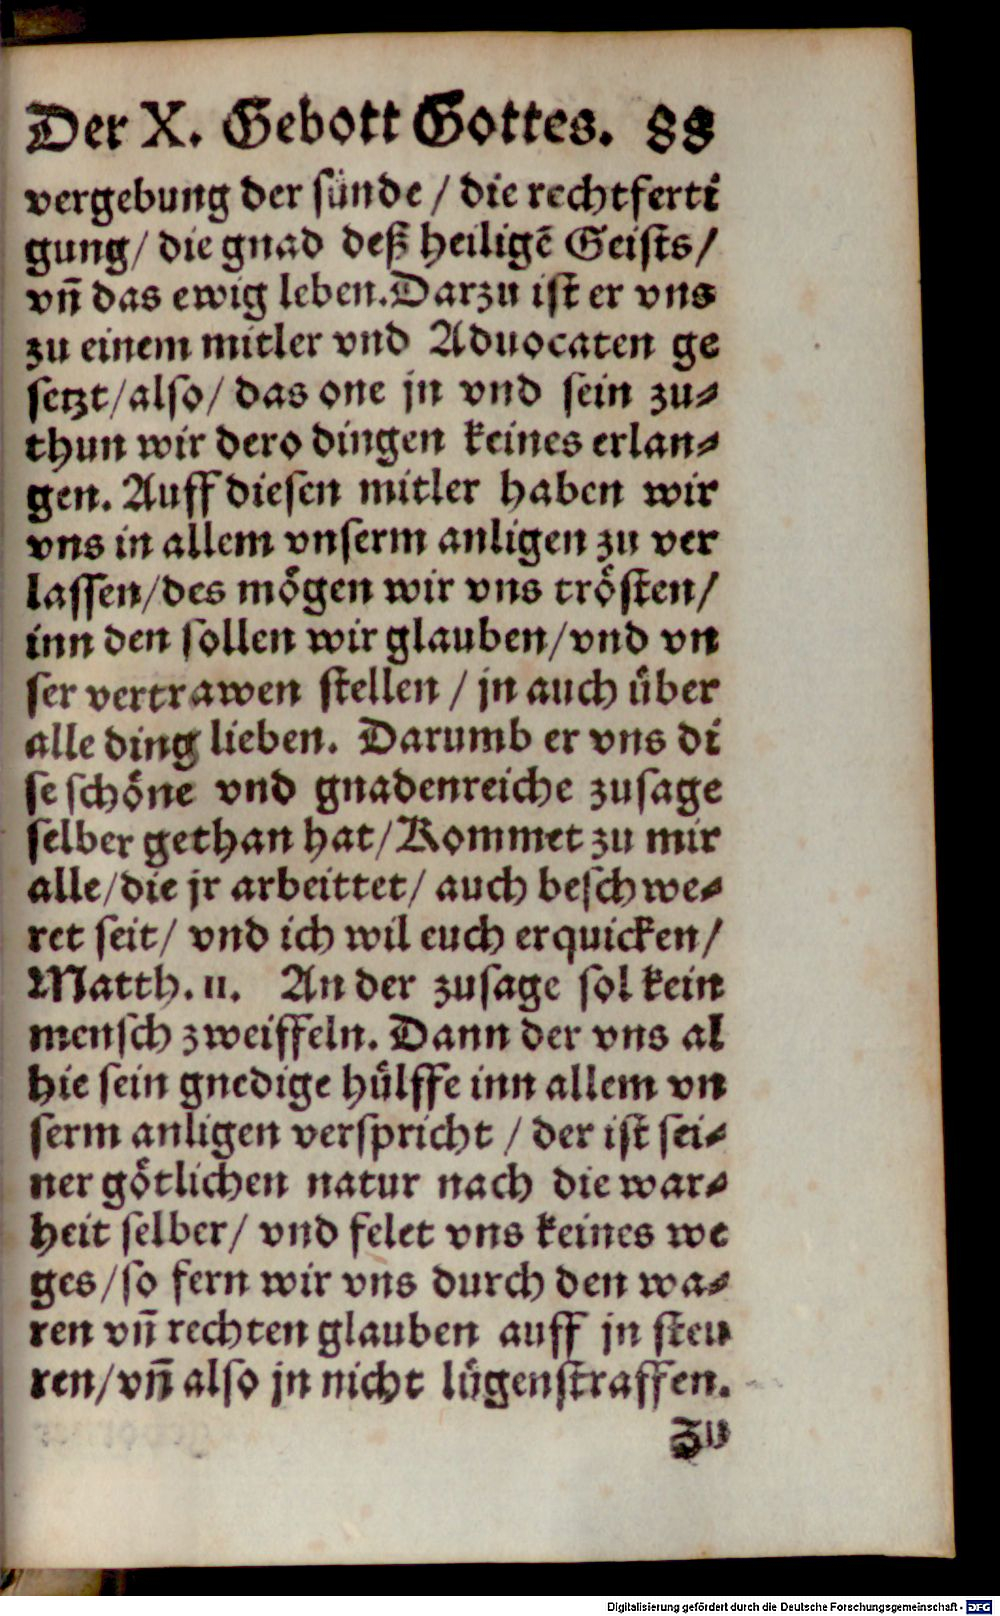 Der X. Gebott Gottes. 88
vergebung der sünde / die rechtferti
gung / die gnad deß heiligē Geists /
vñ das ewig leben. Darzu ist er vns
zu einem mitler vnd Aduocaten ge
setzt / also / das one jn vnd sein zu⸗
thun wir dero dingen keines erlan⸗
gen. Auff diesen mitler haben wir
vns in allem vnserm anligen zu ver
lassen / des mögen wir vns trösten /
inn den sollen wir glauben / vnd vn
ser vertrawen stellen / jn auch über
alle ding lieben. Darumb er vns di
se schöne vnd gnadenreiche zusage
selber gethan hat / Kommet zu mir
alle / die jr arbeittet / auch beschwe⸗
ret seit / vnd ich wil euch erquicken /
Matth. 11. An der zusage sol kein
mensch zweiffeln. Dann der vns al
hie sein gnedige hülffe inn allem vn
serm anligen verspricht / der ist sei⸗
ner götlichen natur nach die war⸗
heit selber / vnd felet vns keines we
ges / so fern wir vns durch den wa⸗
ren vñ rechten glauben auff jn steu
ren / vñ also jn nicht lügenstraffen.
Zu
Digitalisierung gefördert durch die Deutsche Forschungsgemeinschaft - DFG